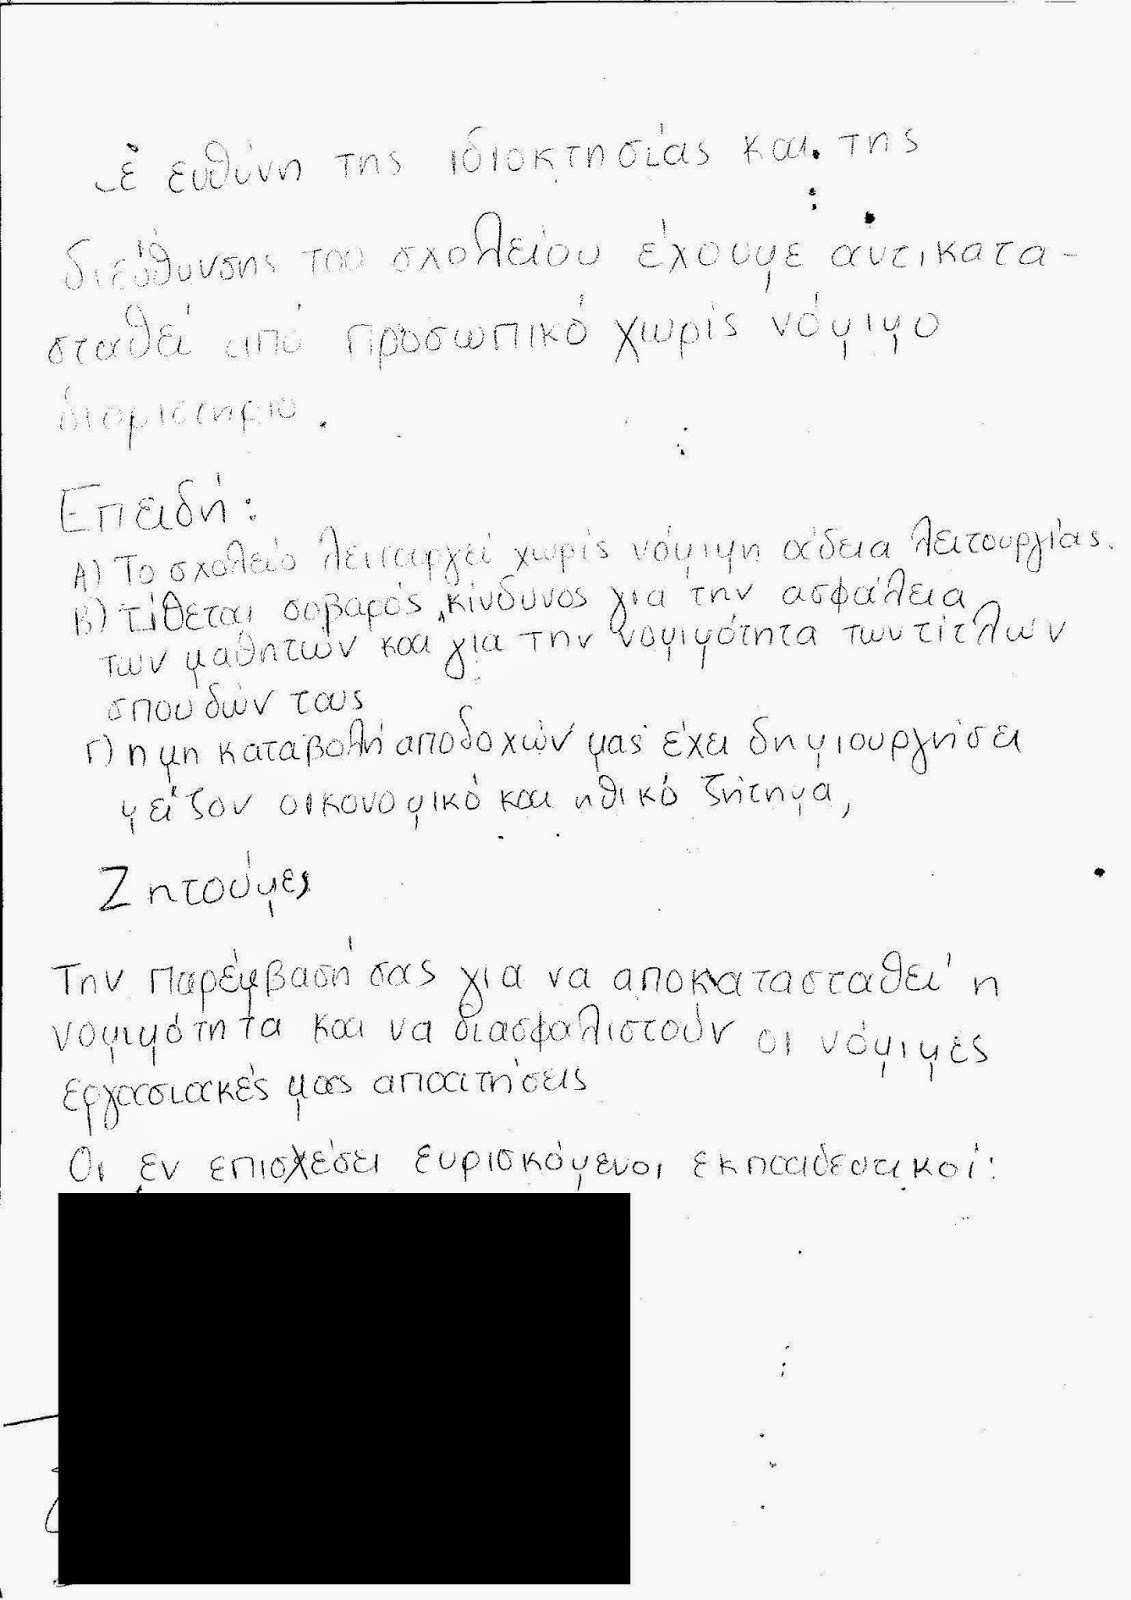 ευθύνη της ιδιοκτησίας και της
διεύθυνσης του σχολείου έχουμε αντικατα-
σταθεί από προσωπικό χωρίς νόμιμο
διοριστήριο.
Επειδή:
Α) Το σχολείο λειτουργεί χωρίς νόμιμη άδεια λειτουργίας.
Β) τίθεται σοβαρός κίνδυνος για την ασφάλεια
των μαθητών και για την νομιμότητα των τίτλων
σπουδών τους
Γ) η μη καταβολή αποδοχών μας έχει δημιουργήσει
μείζον οικονομικό και ηθικό ζήτημα,
Ζητούμε,
Την παρέμβασή σας για να αποκατασταθεί η
νομιμότητα και να διασφαλιστούν οι νόμιμες
εργασιακές μας απαιτήσεις
Οι εν επισχέσει ευρισκόμενοι εκπαιδευτικοί: